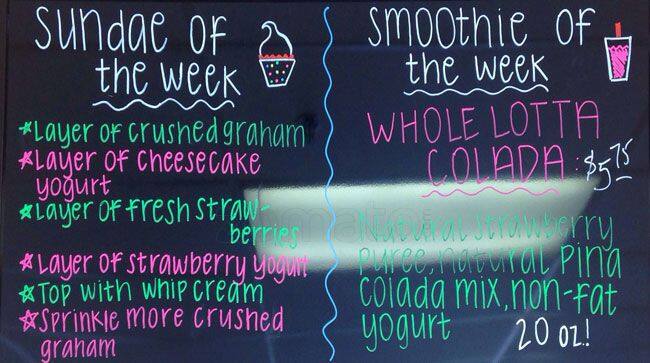 Sundae of
the week
★Layer of crushed graham
★Layer of cheesecake
yogurt
★Layer of fresh straw-
berries
★Layer of strawberry yogurt
★Top with whip cream
★Sprinkle more crushed
graham
Smoothie of
the week
WHOLE LOTTA
COLADA: $5.75
Natural strawberry
puree, natural pina
colada mix, non-fat
yogurt
20 oz.!